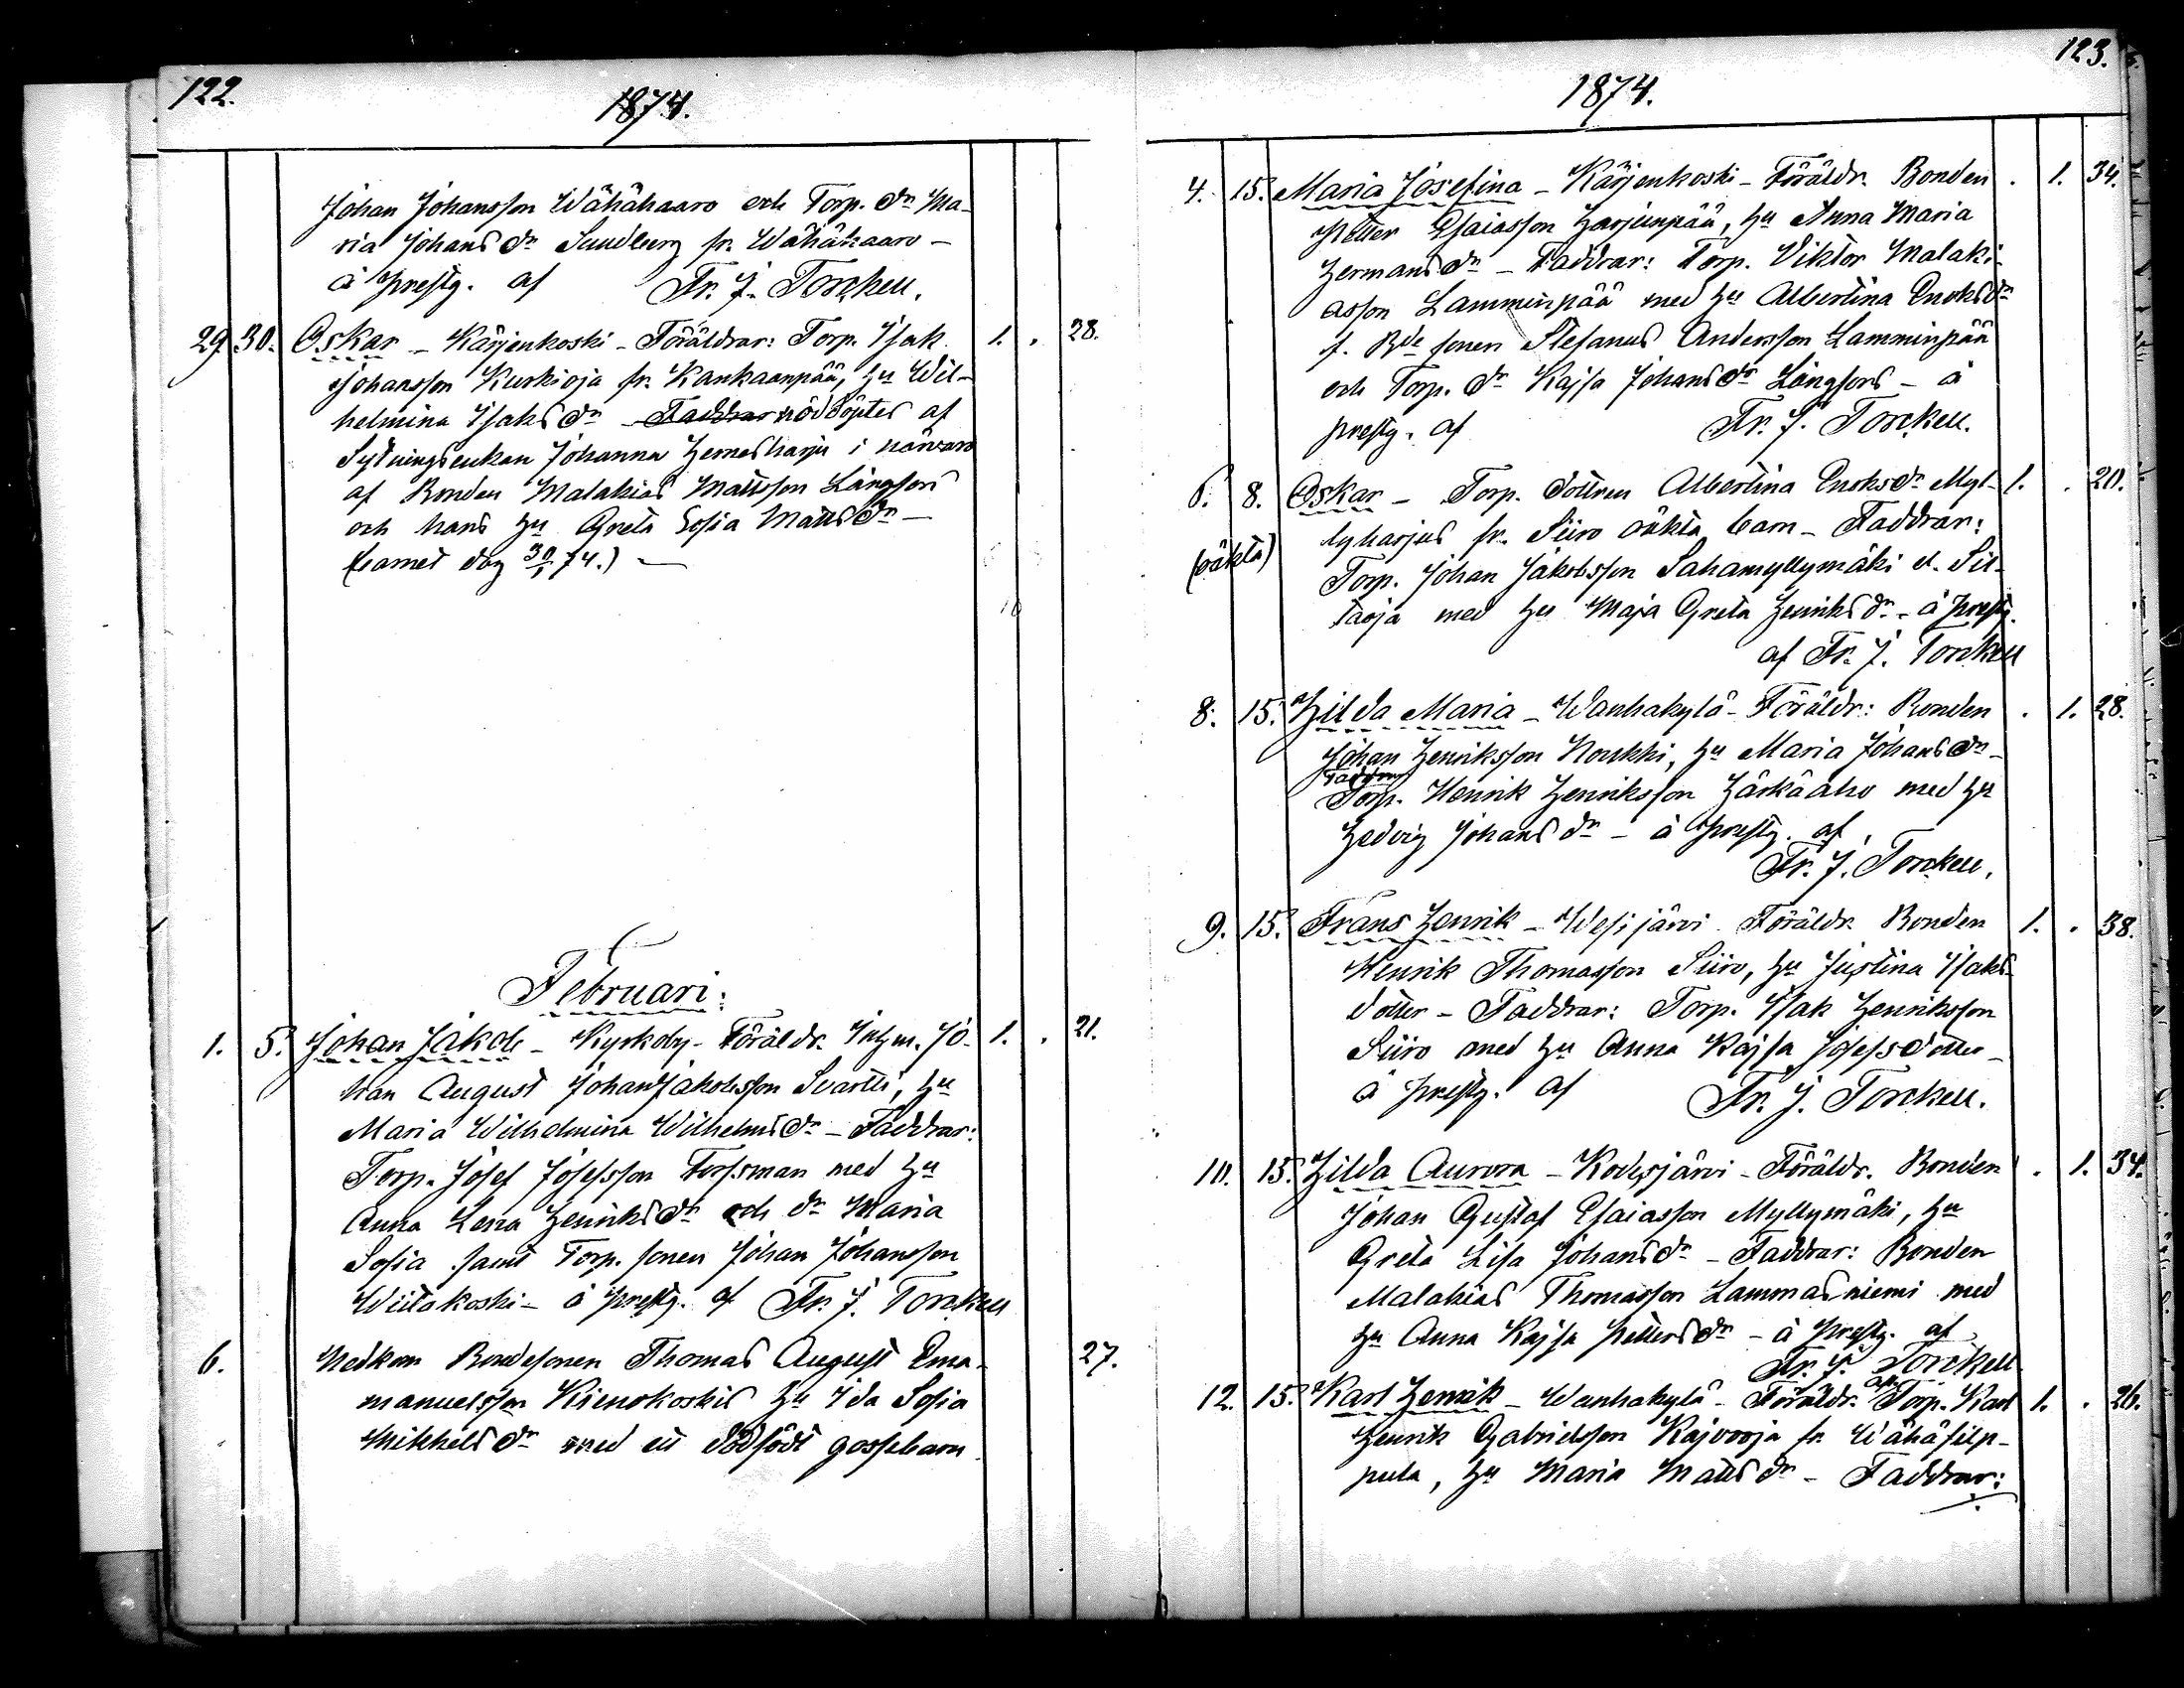 122.
1874.
Johan Johansson Wähähaaro och Torp. dn Ma-
ria Johans dn Sundberg fr. Wähähaaro -
å prestg. af Fr. J. Torckell.
29 30. Oskar - Kärjenkoski - Föräldrar: Torp. Isak 1. . 28.
Johansson Kurkioja fr. Kankaanpää, hu Wil-
helmina Isaks dn - Faddrar nöddöptes af
Sytningsenkan Johanna Herneskarju i närvaro
af Bonden Malakias Mattsson Långfors
och hans hu Greta Sofia Matts dn -
(barnet dog 30/1 74.) -
Februari:
1. 5. Johan Jakob - Kyrkoby - Föräldr. Inhm. Jo- 1. . 21.
han August Johan Jakobsson Svartti, hu
Maria Wilhelmina Wilhelms dn - Faddrar:
Torp. Josef Josefsson Forsman med hu
Anna Lena Henriks dn och dn Maria
Sofia samt Torp. sonen Johan Johansson
Wiitakoski - å prestg. af Fr. J. Torckell
6. Nedkom Bondesonen Thomas August Ema- 27.
manuelsson Kienokoskis hu Ida Sofia
Mikkels dn med ett dödfödt gossebarn
123.
1874.
4. 15. Maria Josefina - Kärjenkoski - Föräldr. Bonden . 1. 34.
Petter Esaiasson Harjunpää, hu Anna Maria
Hermans dn - Faddrar: Torp. Viktor Malaki-
asson Lamminpää med hu Albertina Enoks dn
f. Bde sonen Stefanus Andersson Lamminpää
och Torp. dn Kajsa Johans dn Långfors - å
prestg. af Fr. J. Torckell.
6. 8. Oskar - Torp. dottren Albertina Enoks dn Myl- 1. . 20.
lyharjus fr. Siiro oäkta barn - Faddrar:
(oäkta)
Torp. Johan Jakobsson Sahamyllymäki el. Sil-
taoja med hu Maja Greta Henriks dn - å prestg.
af Fr. J. Torckell
8. 15. Hilda Maria - Wanhakylä - Föräldr: Bonden . 1. 28.
Johan Henriksson Noukki, hu Maria Johans dn -
Faddrar
Torp. Henrik Henriksson Härkäaho med hu
Hedvig Johans dn - å prestg. af
Fr. J. Torckell.
9. 15. Frans Henrik - Wesijärvi Föräldr. Bonden 1. . 38.
Henrik Thomasson Siiro, hu Justina Isaks
dotter - Faddrar: Torp. Isak Henriksson
Siiro med hu Anna Kajsa Josefsdotter -
å prestg. af Fr. J. Torckell.
10. 15. Hilda Aurora - Kodesjärvi - Föräldr. Bonden . 1. 34.
Johan Gustaf Esaiasson Myllymäki, hu
Greta Lisa Johans dn - Faddrar: Bonden
Malakias Thomasson Lammasniemi med
hu Anna Kajsa Petters dn - å prestg. af
Fr. J. Torckell
12. 15. Karl Henrik - Wanhakylä - Föräldr. Torp. Karl 1. . 26.
Henrik Gabrielsson Kajvooja fr. Wähäfilp-
pula, hu Maria Matts dn - Faddrar: